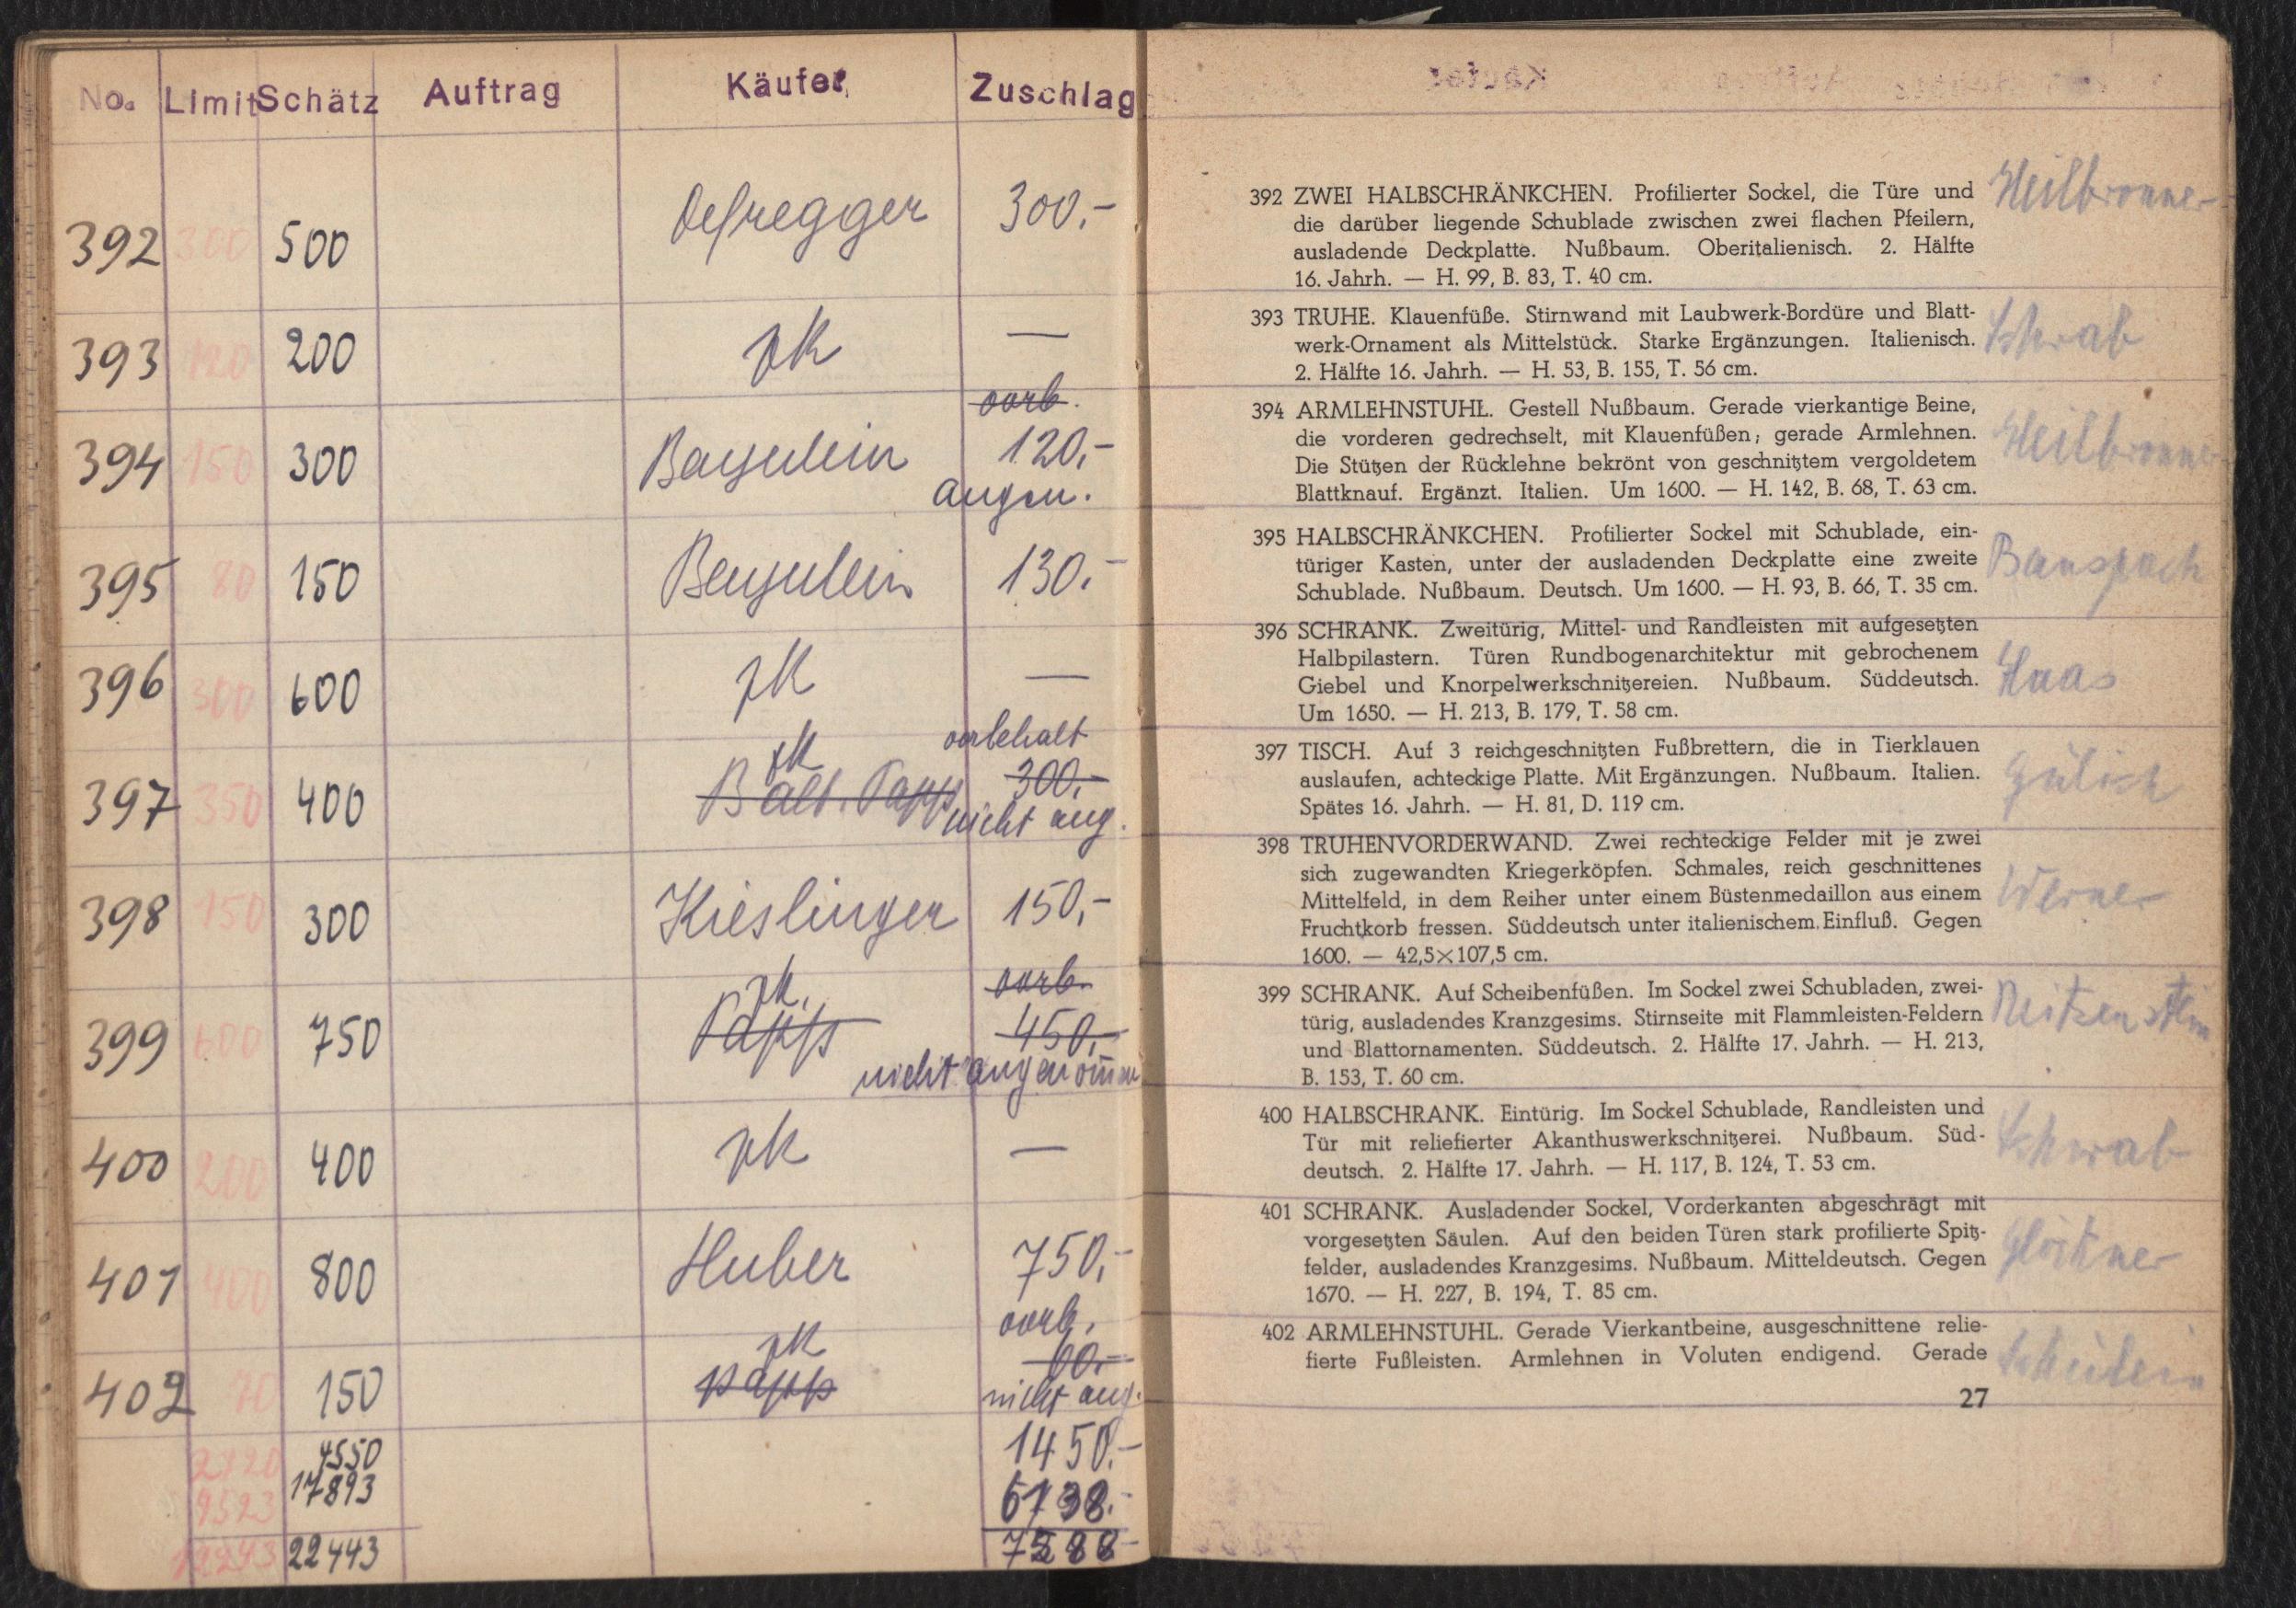 No. Limit Schätz Auftrag Käufer Zuschlag
392 300 500 Defregger 300.-
393 120 200 zK —
vorb.
394 150 300 Bayerlein 120,-
angen.
395 80 150 Bayerlein 130.-
396 300 600 zK —
zK vorbehalt
397 350 400 Balt. Papp 300.-
nicht ang.
398 150 300 Kieslinger 150,-
zK. vorb.
399 600 750 Papps 450,-
nicht angenommen
400 200 400 zK —
401 400 800 Huber 750,-
vorb.
zK 60.-
402 70 150 Papp
nicht ang.
4550 1450.-
17893 6138.-
22443
392 ZWEI HALBSCHRÄNKCHEN. Profilierter Sockel, die Türe und Heilbronner
die darüber liegende Schublade zwischen zwei flachen Pfeilern,
ausladende Deckplatte. Nußbaum. Oberitalienisch. 2. Hälfte
16. Jahrh. — H. 99, B. 83, T. 40 cm.
393 TRUHE. Klauenfüße. Stirnwand mit Laubwerk-Bordüre und Blatt- Schwab
werk-Ornament als Mittelstück. Starke Ergänzungen. Italienisch.
2. Hälfte 16. Jahrh. — H. 53, B. 155, T. 56 cm.
394 ARMLEHNSTUHL. Gestell Nußbaum. Gerade vierkantige Beine, Heilbronner
die vorderen gedrechselt, mit Klauenfüßen; gerade Armlehnen.
Die Stützen der Rücklehne bekrönt von geschnitztem vergoldetem
Blattknauf. Ergänzt. Italien. Um 1600. — H. 142, B. 68, T. 63 cm.
395 HALBSCHRÄNKCHEN. Profilierter Sockel mit Schublade, ein-
türiger Kasten, unter der ausladenden Deckplatte eine zweite
Schublade. Nußbaum. Deutsch. Um 1600. — H. 93, B. 66, T. 35 cm.
396 SCHRANK. Zweitürig, Mittel- und Randleisten mit aufgesetzten
Halbpilastern. Türen Rundbogenarchitektur mit gebrochenem Haas
Giebel und Knorpelwerkschnitzereien. Nußbaum. Süddeutsch.
Um 1650. — H. 213, B. 179, T. 58 cm.
397 TISCH. Auf 3 reichgeschnitzten Fußbrettern, die in Tierklauen Gülich
auslaufen, achteckige Platte. Mit Ergänzungen. Nußbaum. Italien.
Spätes 16. Jahrh. — H. 81, D. 119 cm.
398 TRUHENVORDERWAND. Zwei rechteckige Felder mit je zwei
sich zugewandten Kriegerköpfen. Schmales, reich geschnittenes Werner
Mittelfeld, in dem Reiher unter einem Büstenmedaillon aus einem
Fruchtkorb fressen. Süddeutsch unter italienischem Einfluß. Gegen
1600. — 42,5×107,5 cm.
399 SCHRANK. Auf Scheibenfüßen. Im Sockel zwei Schubladen, zwei-
türig, ausladendes Kranzgesims. Stirnseite mit Flammleisten-Feldern
und Blattornamenten. Süddeutsch. 2. Hälfte 17. Jahrh. — H. 213,
B. 153, T. 60 cm.
400 HALBSCHRANK. Eintürig. Im Sockel Schublade, Randleisten und Schwab
Tür mit reliefierter Akanthuswerkschnitzerei. Nußbaum. Süd-
deutsch. 2. Hälfte 17. Jahrh. — H. 117, B. 124, T. 53 cm.
401 SCHRANK. Ausladender Sockel, Vorderkanten abgeschrägt mit
vorgesetzten Säulen. Auf den beiden Türen stark profilierte Spitz-
felder, ausladendes Kranzgesims. Nußbaum. Mitteldeutsch. Gegen
1670. — H. 227, B. 194, T. 85 cm.
402 ARMLEHNSTUHL. Gerade Vierkantbeine, ausgeschnittene relie-
fierte Fußleisten. Armlehnen in Voluten endigend. Gerade
27